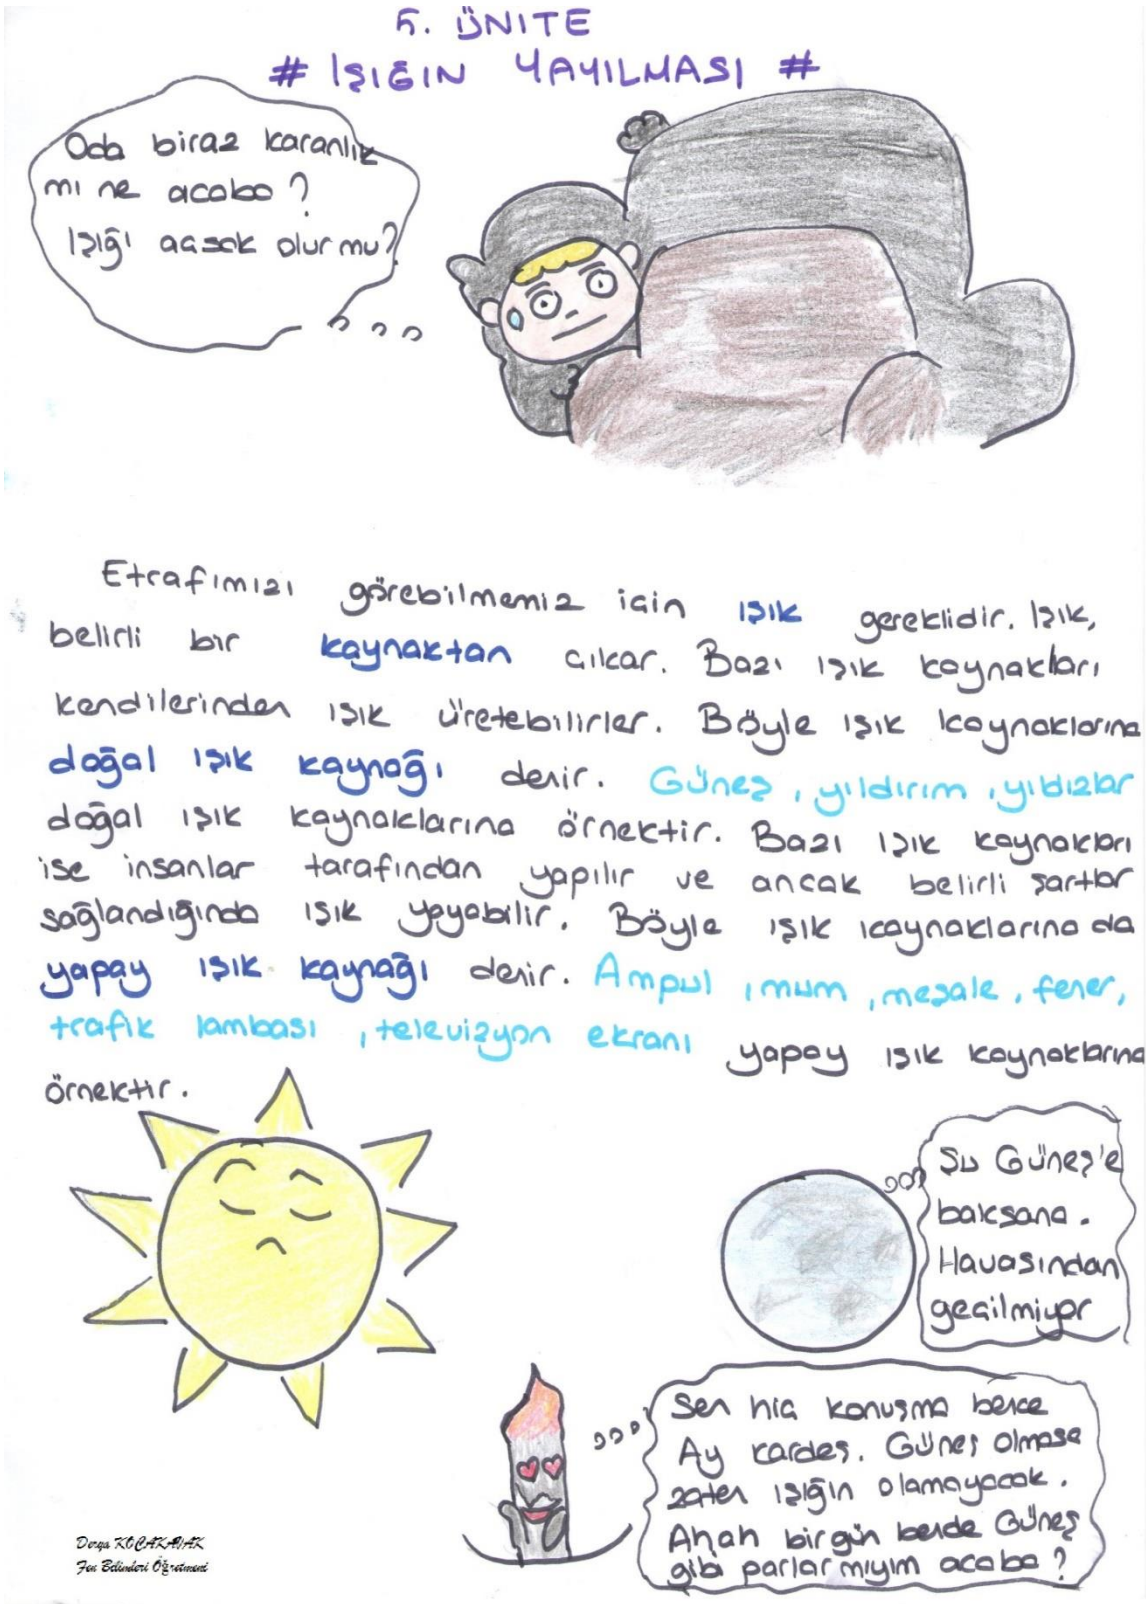 5. ÜNİTE
# IŞIĞIN YAYILMASI #
Oda biraz karanlık
mı ne acaba ?
Işığı açsak olur mu?
Etrafımızı görebilmemiz için ışık gereklidir. Işık,
belirli bir kaynaktan çıkar. Bazı ışık kaynakları
kendilerinden ışık üretebilirler. Böyle ışık kaynaklarına
doğal ışık kaynağı denir. Güneş, yıldırım, yıldızlar
doğal ışık kaynaklarına örnektir. Bazı ışık kaynakları
ise insanlar tarafından yapılır ve ancak belirli şartlar
sağlandığında ışık yayabilir. Böyle ışık kaynaklarına da
yapay ışık kaynağı denir. Ampul, mum, meşale, fener,
trafik lambası, televizyon ekranı yapay ışık kaynaklarına
örnektir.
Şu Güneş'e
baksana.
Havasından
geçilmiyor
Sen hiç konuşma bence
Ay kardeş. Güneş olmasa
zaten ışığın olamayacak.
Ahah bir gün bende Güneş
gibi parlar mıyım acaba ?
Derya KOCAKAYAK
Fen Bilimleri Öğretmeni